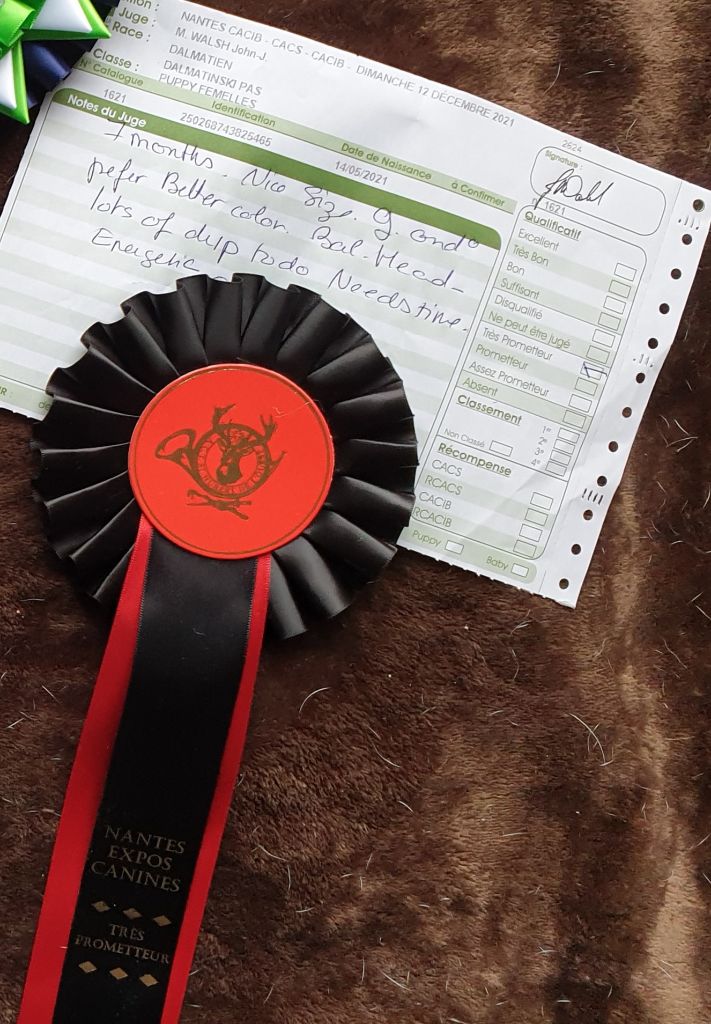 NANTES CACIB - CACS - CACIB - DIMANCHE 12 DÉCEMBRE 2021
Juge : M. WALSH John-J.
Race : DALMATIEN
DALMATINSKI PAS
Classe : PUPPY FEMELLES
N° Catalogue Identification Date de Naissance à Confirmer
1621 250268743825465 14/05/2021
Notes du Juge
7 months. Nice Size. G. cond
prefer Better color. Bal. Head-
lots of dup todo Needs time.
Energetic
2624
Signature :
1621
Qualificatif
Excellent
Très Bon
Bon
Suffisant
Disqualifié
Ne peut être jugé
Très Prometteur
Prometteur
Assez Prometteur
Absent
Classement
1er
2e
3e
4e
Non Classé
Récompense
CACS
RCACS
CACIB
RCACIB
Puppy Baby
NANTES
EXPOS
CANINES
TRÈS
PROMETTEUR